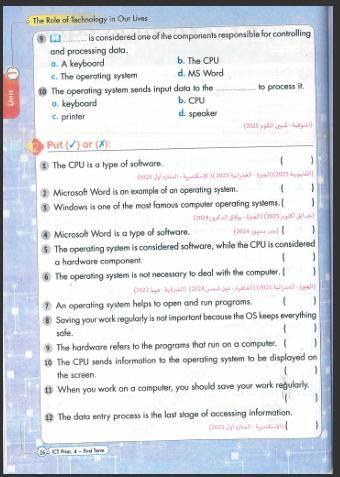 The Role of Technology in Our Lives
Unit 1
9 ............ is considered one of the components responsible for controlling
and processing data.
a. A keyboard b. The CPU
c. The operating system d. MS Word
10 The operating system sends input data to the ............ to process it.
a. keyboard b. CPU
c. printer d. speaker
(المنوفية - شبين الكوم 2025)
2 Put (✓) or (✗):
1 The CPU is a type of software. ( )
2 Microsoft Word is an example of an operating system. ( )
3 Windows is one of the most famous computer operating systems. ( )
4 Microsoft Word is a type of software. ( )
5 The operating system is considered software, while the CPU is considered
a hardware component. ( )
6 The operating system is not necessary to deal with the computer. ( )
7 An operating system helps to open and run programs. ( )
8 Saving your work regularly is not important because the OS keeps everything
safe. ( )
9 The hardware refers to the programs that run on a computer. ( )
10 The CPU sends information to the operating system to be displayed on
the screen. ( )
11 When you work on a computer, you should save your work regularly.
( )
12 The data entry process is the last stage of accessing information.
( )
ICT Prim. 4 - First Term